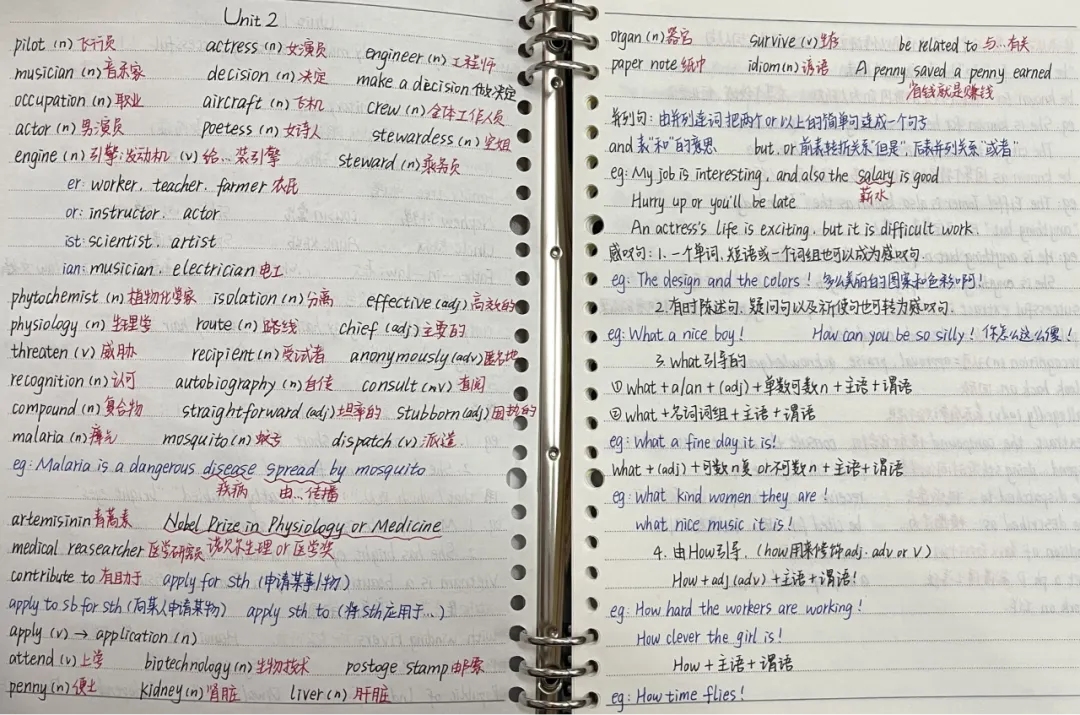 Unit 2
pilot (n) 飞行员 actress (n) 女演员 engineer (n) 工程师
musician (n) 音乐家 decision (n) 决定 make a decision 做决定
occupation (n) 职业 aircraft (n) 飞机 crew (n) 全体工作人员
actor (n) 男演员 poetess (n) 女诗人 stewardess (n) 空姐
engine (n) 引擎;发动机 (v) 给...装引擎 steward (n) 乘务员
er: worker, teacher, farmer 农民
or: instructor, actor
ist: scientist, artist
ian: musician, electrician 电工
phytochemist (n) 植物化学家 isolation (n) 分离 effective (adj) 高效的
physiology (n) 生理学 route (n) 路线 chief (adj) 主要的
threaten (v) 威胁 recipient (n) 受试者 anonymously (adv) 匿名地
recognition (n) 认可 autobiography (n) 自传 consult (nv) 查阅
compound (n) 复合物 straightforward (adj) 坦率的 stubborn (adj) 固执的
malaria (n) 疟疾 mosquito (n) 蚊子 dispatch (v) 派遣
eg: Malaria is a dangerous disease spread by mosquito
疾病 由...传播
artemisinin 青蒿素 Nobel Prize in Physiology or Medicine
medical reasearcher 医学研究员 诺贝尔生理 or 医学奖
contribute to 有助于 apply for sth (申请某事/物)
apply to sb for sth (向某人申请某物) apply sth to (将sth应用于...)
apply (v) → application (n)
attend (v) 上学 biotechnology (n) 生物技术 postage stamp 邮票
penny (n) 便士 kidney (n) 肾脏 liver (n) 肝脏
organ (n) 器官 survive (v) 生存 be related to 与...有关
paper note 纸巾 idiom (n) 谚语 A penny saved a penny earned
省钱就是赚钱
并列句: 由并列连词把两个or以上的简单句连成一个句子
and 表"和"的意思 but, or 前表转折关系"但是", 后表并列关系"或者"
eg: My job is interesting, and also the salary is good
薪水
Hurry up or you'll be late
An actress's life is exciting, but it is difficult work.
感叹句: 1. 一个单词, 短语或一个词组也可以成为感叹句.
eg: The design and the colors! 多么美丽的图案和色彩啊!
2. 有时陈述句, 疑问句以及祈使句也可转为感叹句.
eg: What a nice boy! How can you be so silly! 你怎么这么傻!
3. what引导的
① what + a/an + (adj) + 单数可数n + 主语 + 谓语
② what + 名词词组 + 主语 + 谓语
eg: What a fine day it is!
what + (adj) + 可数n复 or 不可数n + 主语 + 谓语
eg: what kind women they are!
what nice music it is!
4. 由How引导. (how用来修饰adj. adv or v)
How + adj (adv) + 主语 + 谓语!
eg: How hard the workers are working!
How clever the girl is!
How + 主语 + 谓语
eg: How time flies!